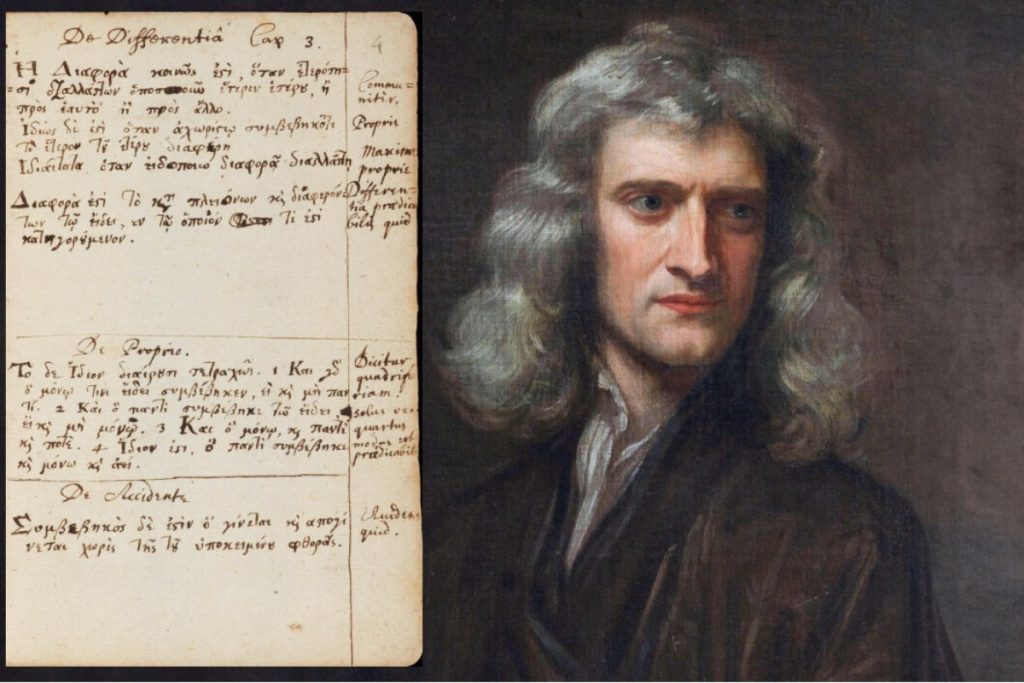 De Differentiâ Cap 3.
4
Η Διαφορὰ κοινῶς ἐςὶ, ὅταν ἑτερότη-
ἕτερον ἑτέρου, ἢ
πρὸς ἑαυτὸ ἢ πρὸς ἄλλο.
Ἰδίως δὲ ἐςὶ ὅταν ἀχωρίςῳ συμβεβηκότι
Τὸ ἕτερον τοῦ ἑτέρου διαφέρῃ
Ἰδιαίτατα ὅταν εἰδοποιῷ διαφορᾷ διαλλάττῃ
Διαφορὰ ἐςὶ τὸ κατὰ πλειόνων κὶ διαφερόν-
των τῷ εἴδει, ἐν τῷ ὁποῖον τὶ ἐςὶ
κατηγορούμενον.
Commu-
niter.
Proprie
Maxime
proprie
Differen-
tia prædica
bilis quid
De Proprio.
Τὸ δὲ Ἴδιον διαιροῦσι τετραχῶς. 1 Καὶ γὸ
ὃ μόνῳ τινι εἴδει συμβέβηκεν, εἰ κὶ μὴ παν
τί. 2 Καὶ ὃ παντὶ συμβέβηκε τῷ εἴδει,
εἰ κὶ μὴ μόνῳ. 3 Καὶ ὃ μόνῳ, κὶ παντὶ
κὶ ποτὲ. 4 Ἴδιον ἐςι. ὃ παντὶ συμβέβηκε
κὶ μόνῳ κὶ ἀεί.
Dicitur
quadrifa
riam:
solus vero
quartus
modus est
prædicabil
De Accidente
Συμβεβηκὸς δὲ ἐςὶν ὃ γίνεται κὶ απογί
νεται χωρὶς τῆς τοῦ ὑποκειμένου φθορᾶς.
Accidens
quid.